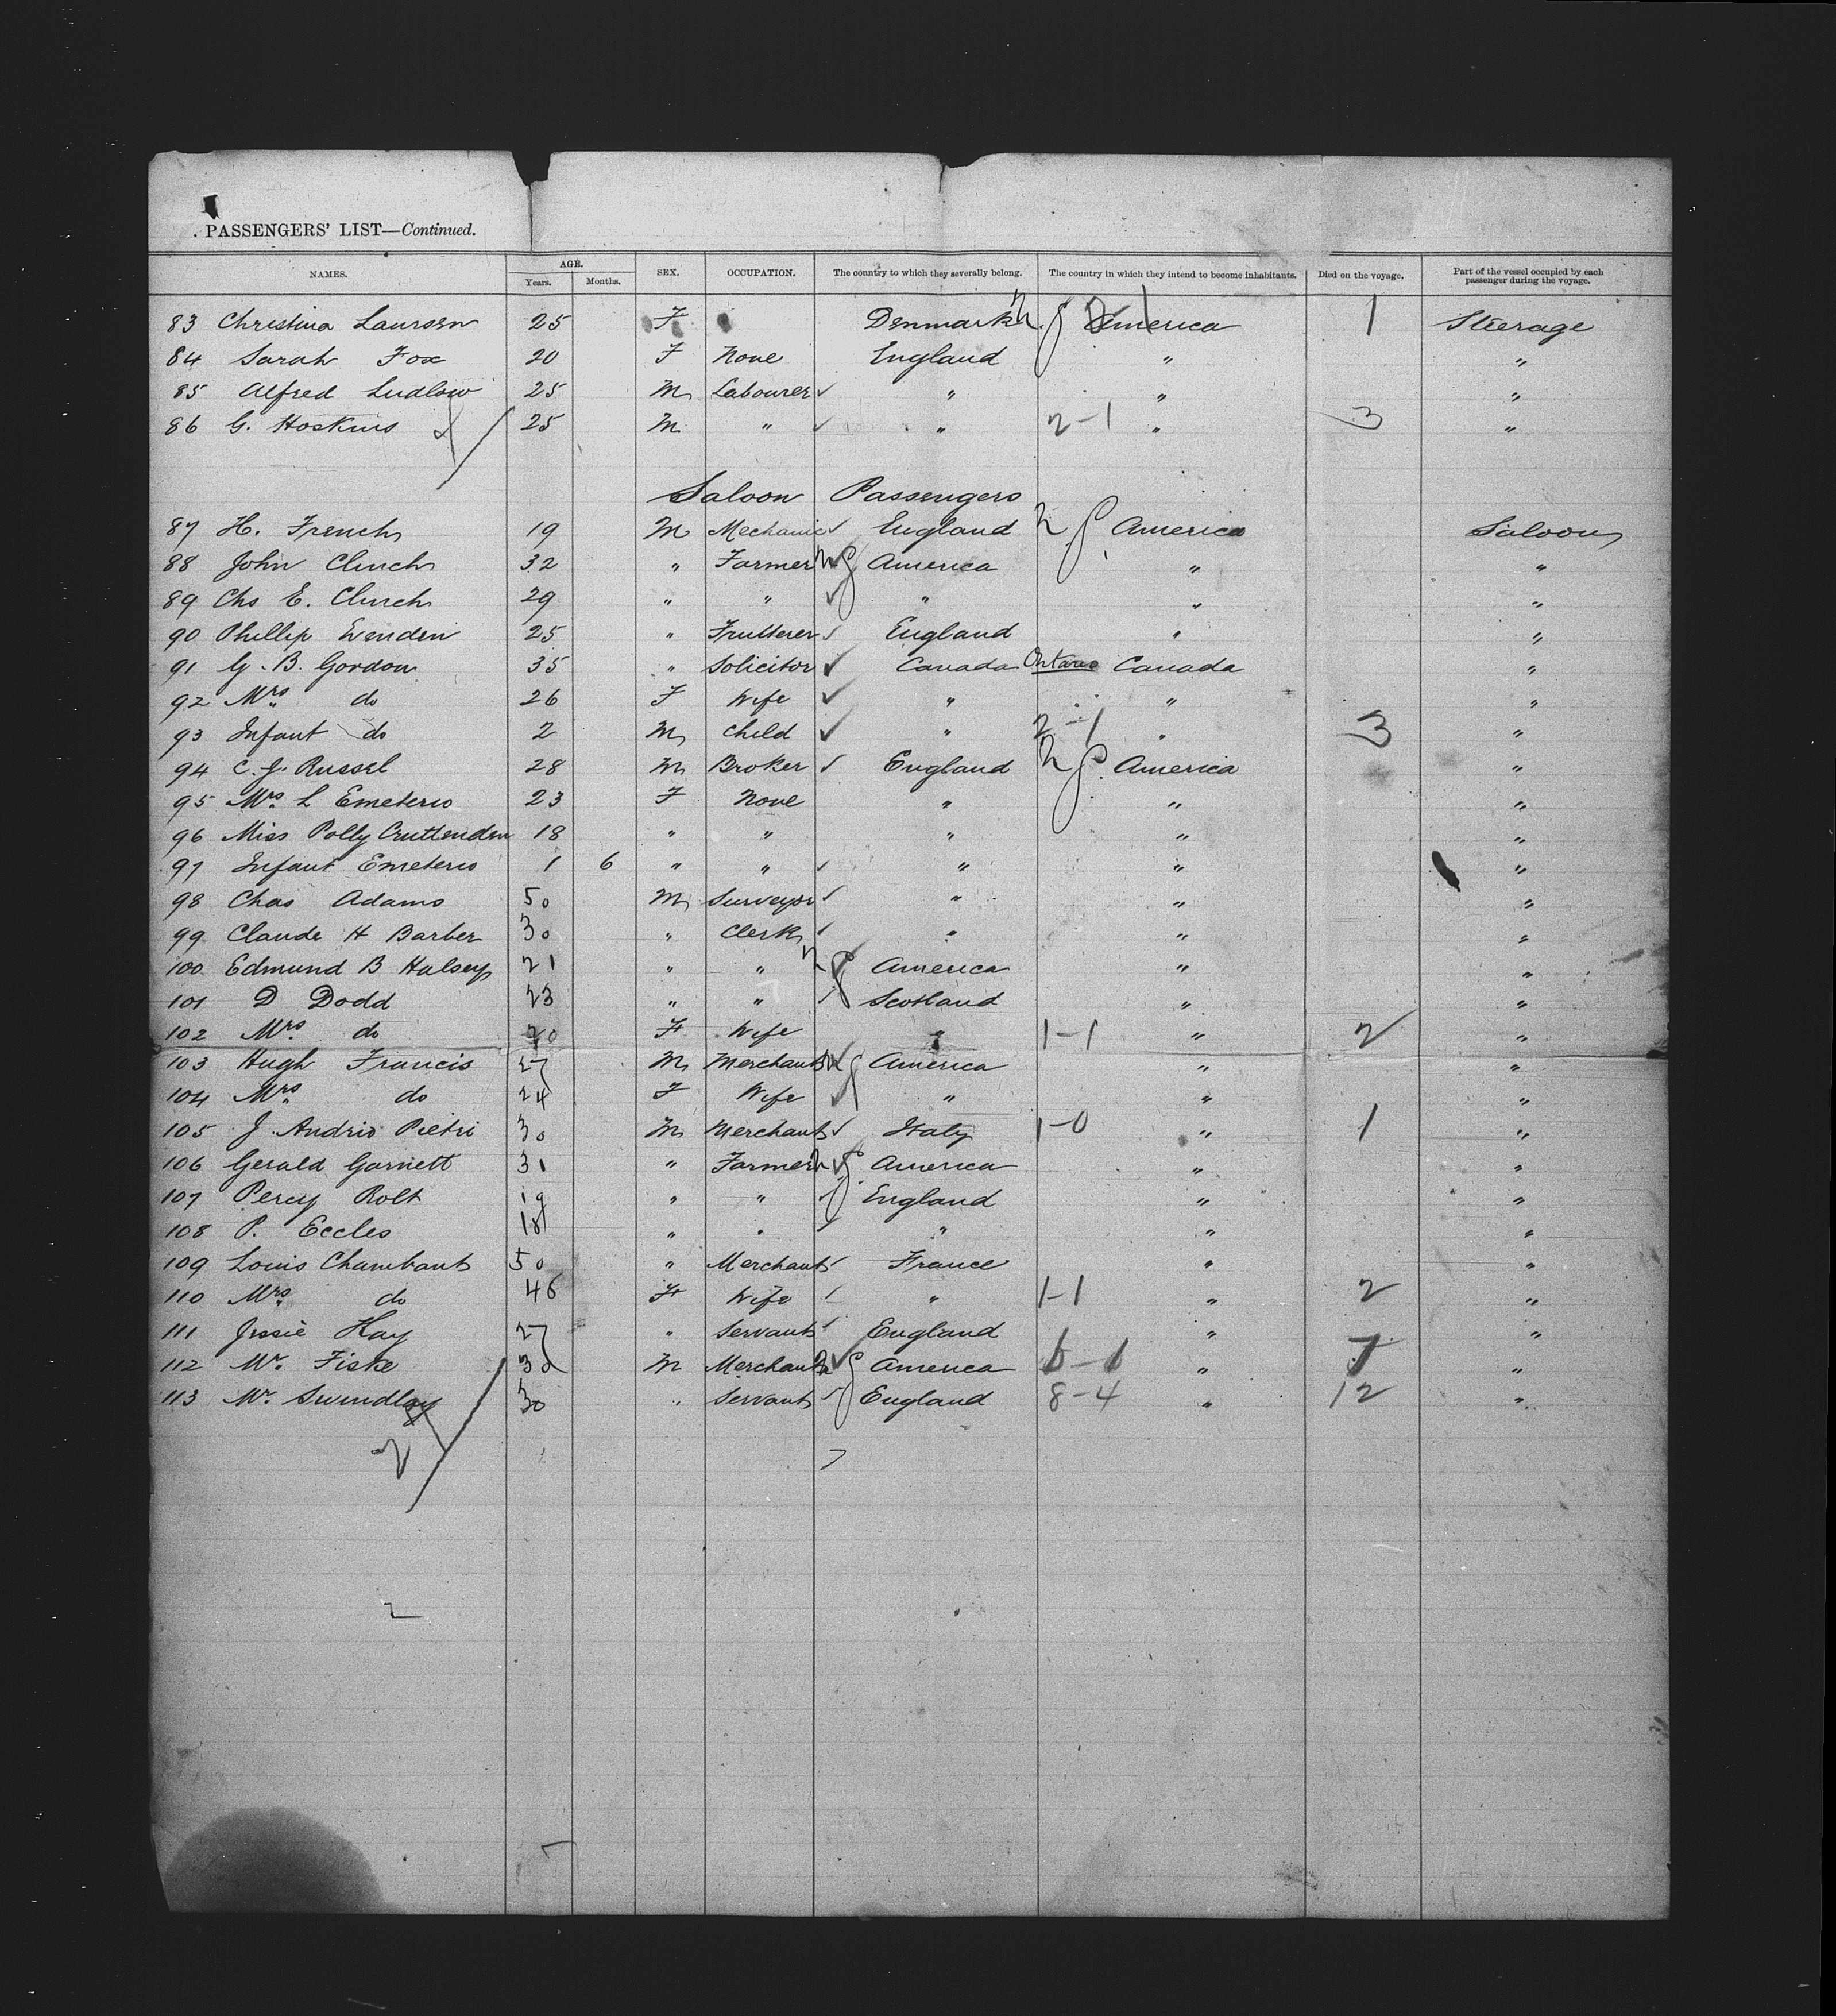 PASSENGERS' LIST—Continued.
NAMES. AGE. SEX. OCCUPATION. The country to which they severally belong. The country in which they intend to become inhabitants. Died on the voyage. Part of the vessel occupied by each passenger during the voyage.
Years. Months.
83 Christina Laursen 25 F Denmark America 1 Steerage
84 Sarah Fox 20 F None England " "
85 Alfred Ludlow 25 M Labourer " " "
86 G. Hoskins 25 M " " 2-1 " 3 "
Saloon Passengers
87 H. French 19 M Mechanic England America Saloon
88 John Clinch 32 " Farmer America " "
89 Chs E. Clinch 29 " " " " "
90 Phillip Evenden 25 " Fruiterer England " "
91 G. B. Gordon 35 " Solicitor Canada Ontario Canada "
92 Mrs do 26 F Wife " " "
93 Infant do 2 M Child " 2-1 " 3 "
94 C. J. Russel 28 M Broker England America "
95 Mrs. L Emeterio 23 F None " " "
96 Miss Polly Cruttenden 18 " " " " "
97 Infant Emeterio 1 6 " " " " "
98 Chas Adams 50 M Surveyor " " "
99 Claude H Barber 30 " Clerk " " "
100 Edmund B Halsey 21 " " America " "
101 D Dodd 23 " " Scotland " "
102 Mrs. do 20 F Wife " 1-1 " 2 "
103 Hugh Francis 27 M Merchant America " "
104 Mrs do 24 F Wife " " "
105 J Andrio Pietri 30 M Merchant Italy 1-0 " 1 "
106 Gerald Garnett 31 " Farmer America " "
107 Percy Rolt 19 " " England " "
108 P. Eccles 18 " " " " "
109 Louis 50 " Merchant France " "
110 Mrs. do 46 F Wife " 1-1 " 2 "
111 Jessie Hay 27 " Servant England " "
112 Mr. Fiske 30 M Merchant America 6-1 " 7 "
113 Mr. 30 " Servant England 8-4 " 12 "
2